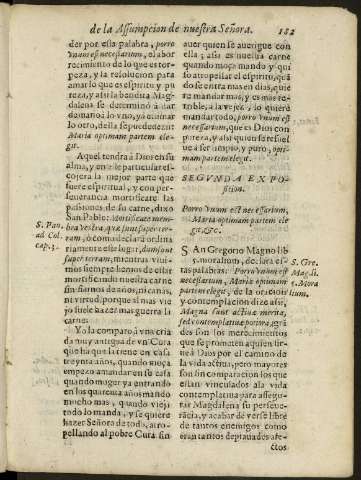 de la Assumpcion de nuestra Señora. 182
der por esta palabra, porro
vnum est necessarium, el abor
recimiento de lo que es tor-
peza, y la resolucion para
amar lo que es espiritu y pu
reza, y assi la bendita Mag-
dalena se determinò a dar
de mano a lo vno, ya caminar
lo otro, della se puede dezir
Maria optimam partem ele-
git.
Aquel tendrà a Dios en su
alma, y en este particular es-
cojera la mejor parte que
fuere espiritual, y con per-
seuerancia mortificare las
passiones de su carne, dixo
San Pablo: Mortificate mem-
bra vestra quæ sunt super ter-
ram, o como declara ordina
riamente este lugar, dum sunt
super terram; mientras viui-
mos siempre hemos de estar
mortificando nuestra carne
sin fiarnos de años, ni canas,
ni virtud, porque al mas vie
jo suele hazer mas guerra la
carne.
Yo la comparo a vna cria
da muy antigua de vn Cura
que ha que la tiene en casa
treynta años, quando moça
empezo a mandar en su casa
quando muger ya entrando
en los quarenta años mando
mucho mas, quando vieja
todo lo manda, y se quiere
hazer Señora de todo, atro-
pellando al pobre Cura sin
S. Pau.
ad Col.
cap. 3.
auer quien se aueriguе con
ella; assi es nuestra carne
quando moça mando y qui
so atropellar el espiritu, quã
do se entra en mas dias, quie
re mandar mas, y es mas ter-
rible, a la vejez, lo quiere
mandar todo, porro vnum est
necessarium, que es Dios con
pureza, y assi quien se resuel
ue a ser limpio, y puro, opti-
mam partem elegit.
SEGVNDA EXPO-
sicion.
Porro vnum est necessarium,
Maria optimam partem ele
git, &c.
SAn Gregorio Magno lib.
moralium, declara es-
tas palabras: Porro vnum est
necessarium, Maria optimam
partem elegit, de la oracion
y contemplacion dize assi,
Magna sunt actiuæ merita,
sed contemplatiuæ potiora, grã
des son los merecimientos
que se prometen a quien sir-
ue a Dios por el camino de
la vida actiua, pero mayores
son sin comparacion los que
estan vinculados a la vida
contemplatiua para assegu-
rar Magdalena su perseue-
rãcia, y acabar de verse libre
de tantos enemigos como
eran tantos deprauados afe-
ctos
S. Gre.
Mag. li.
Mora
lium.